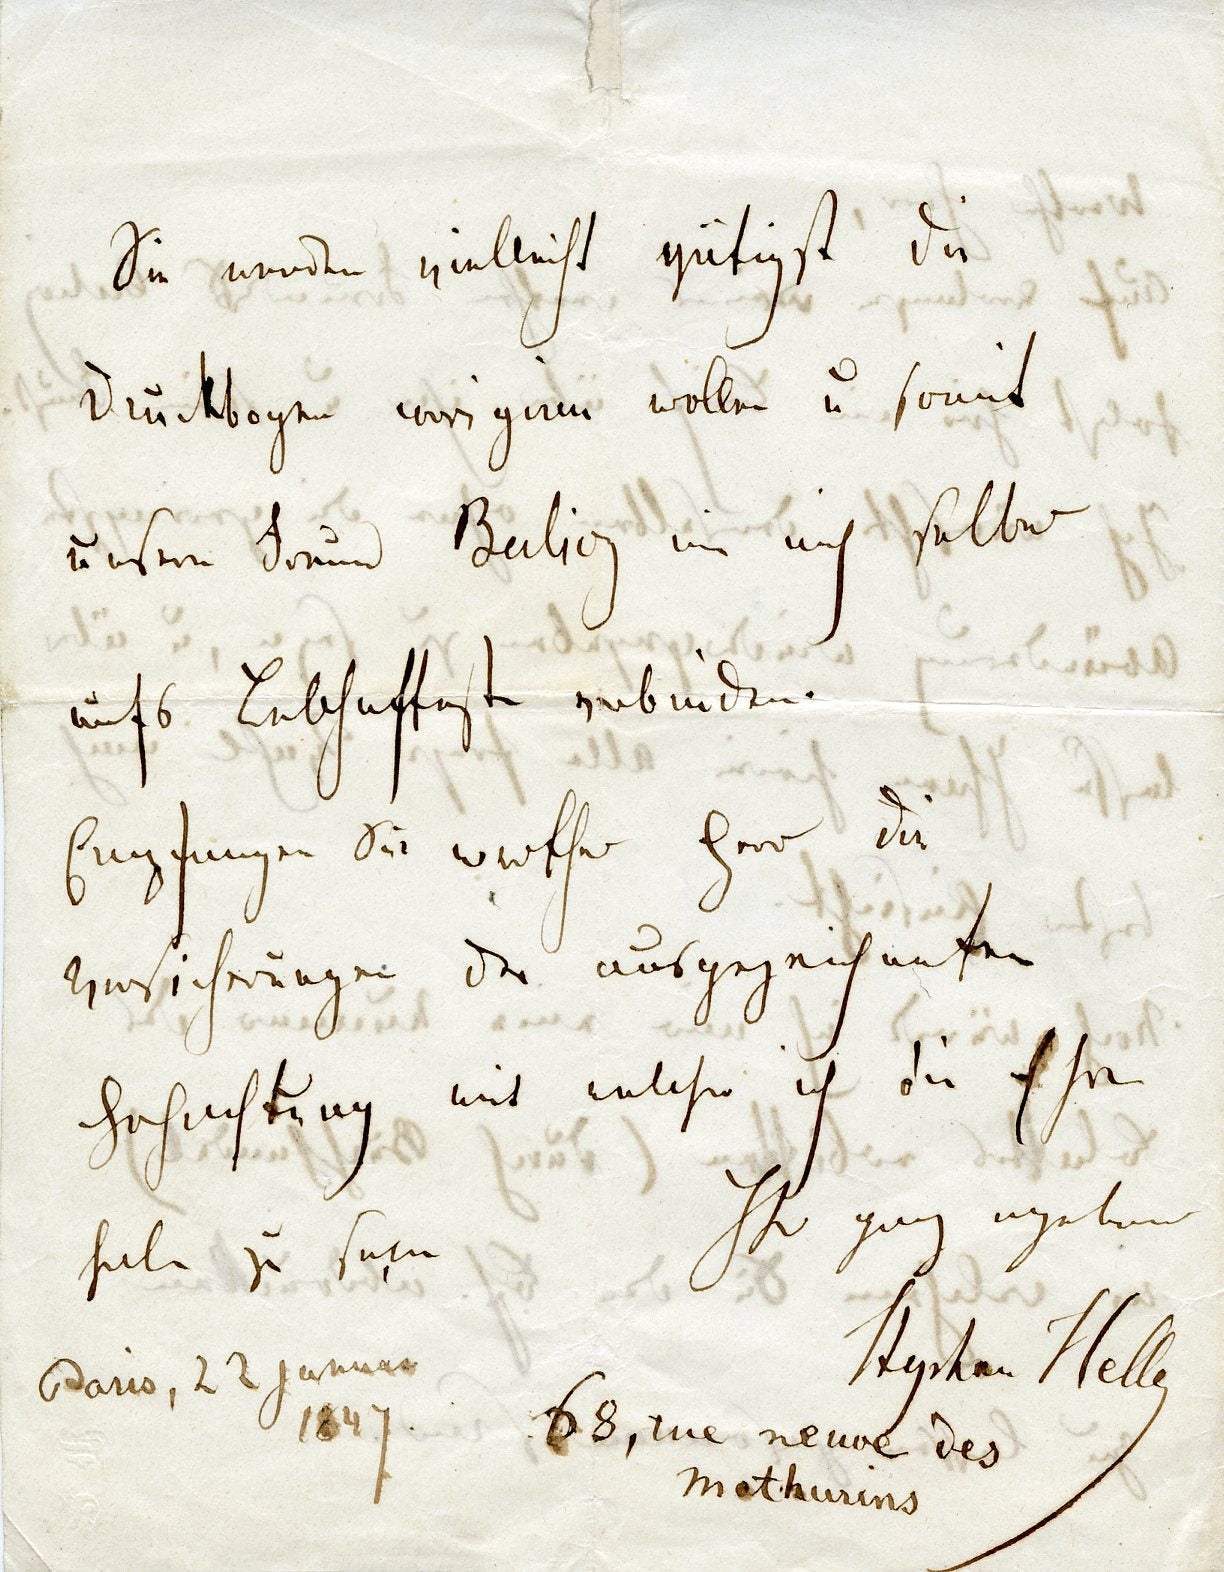 Sie werden vielleicht gütigst die
Druckbogen corrigiren wollen u somit
unsern Freund Berlioz wie mich selber
aufs Lebhafteste verbinden.
Empfangen Sie werther Herr die
Versicherungen der ausgezeichneten
Hochachtung mit welcher ich die Ehre
habe zu seyn
Ihr ganz ergebener
Stephen Heller
Paris, 22 Januar
1847.
68, rue neuve des
Mathurins